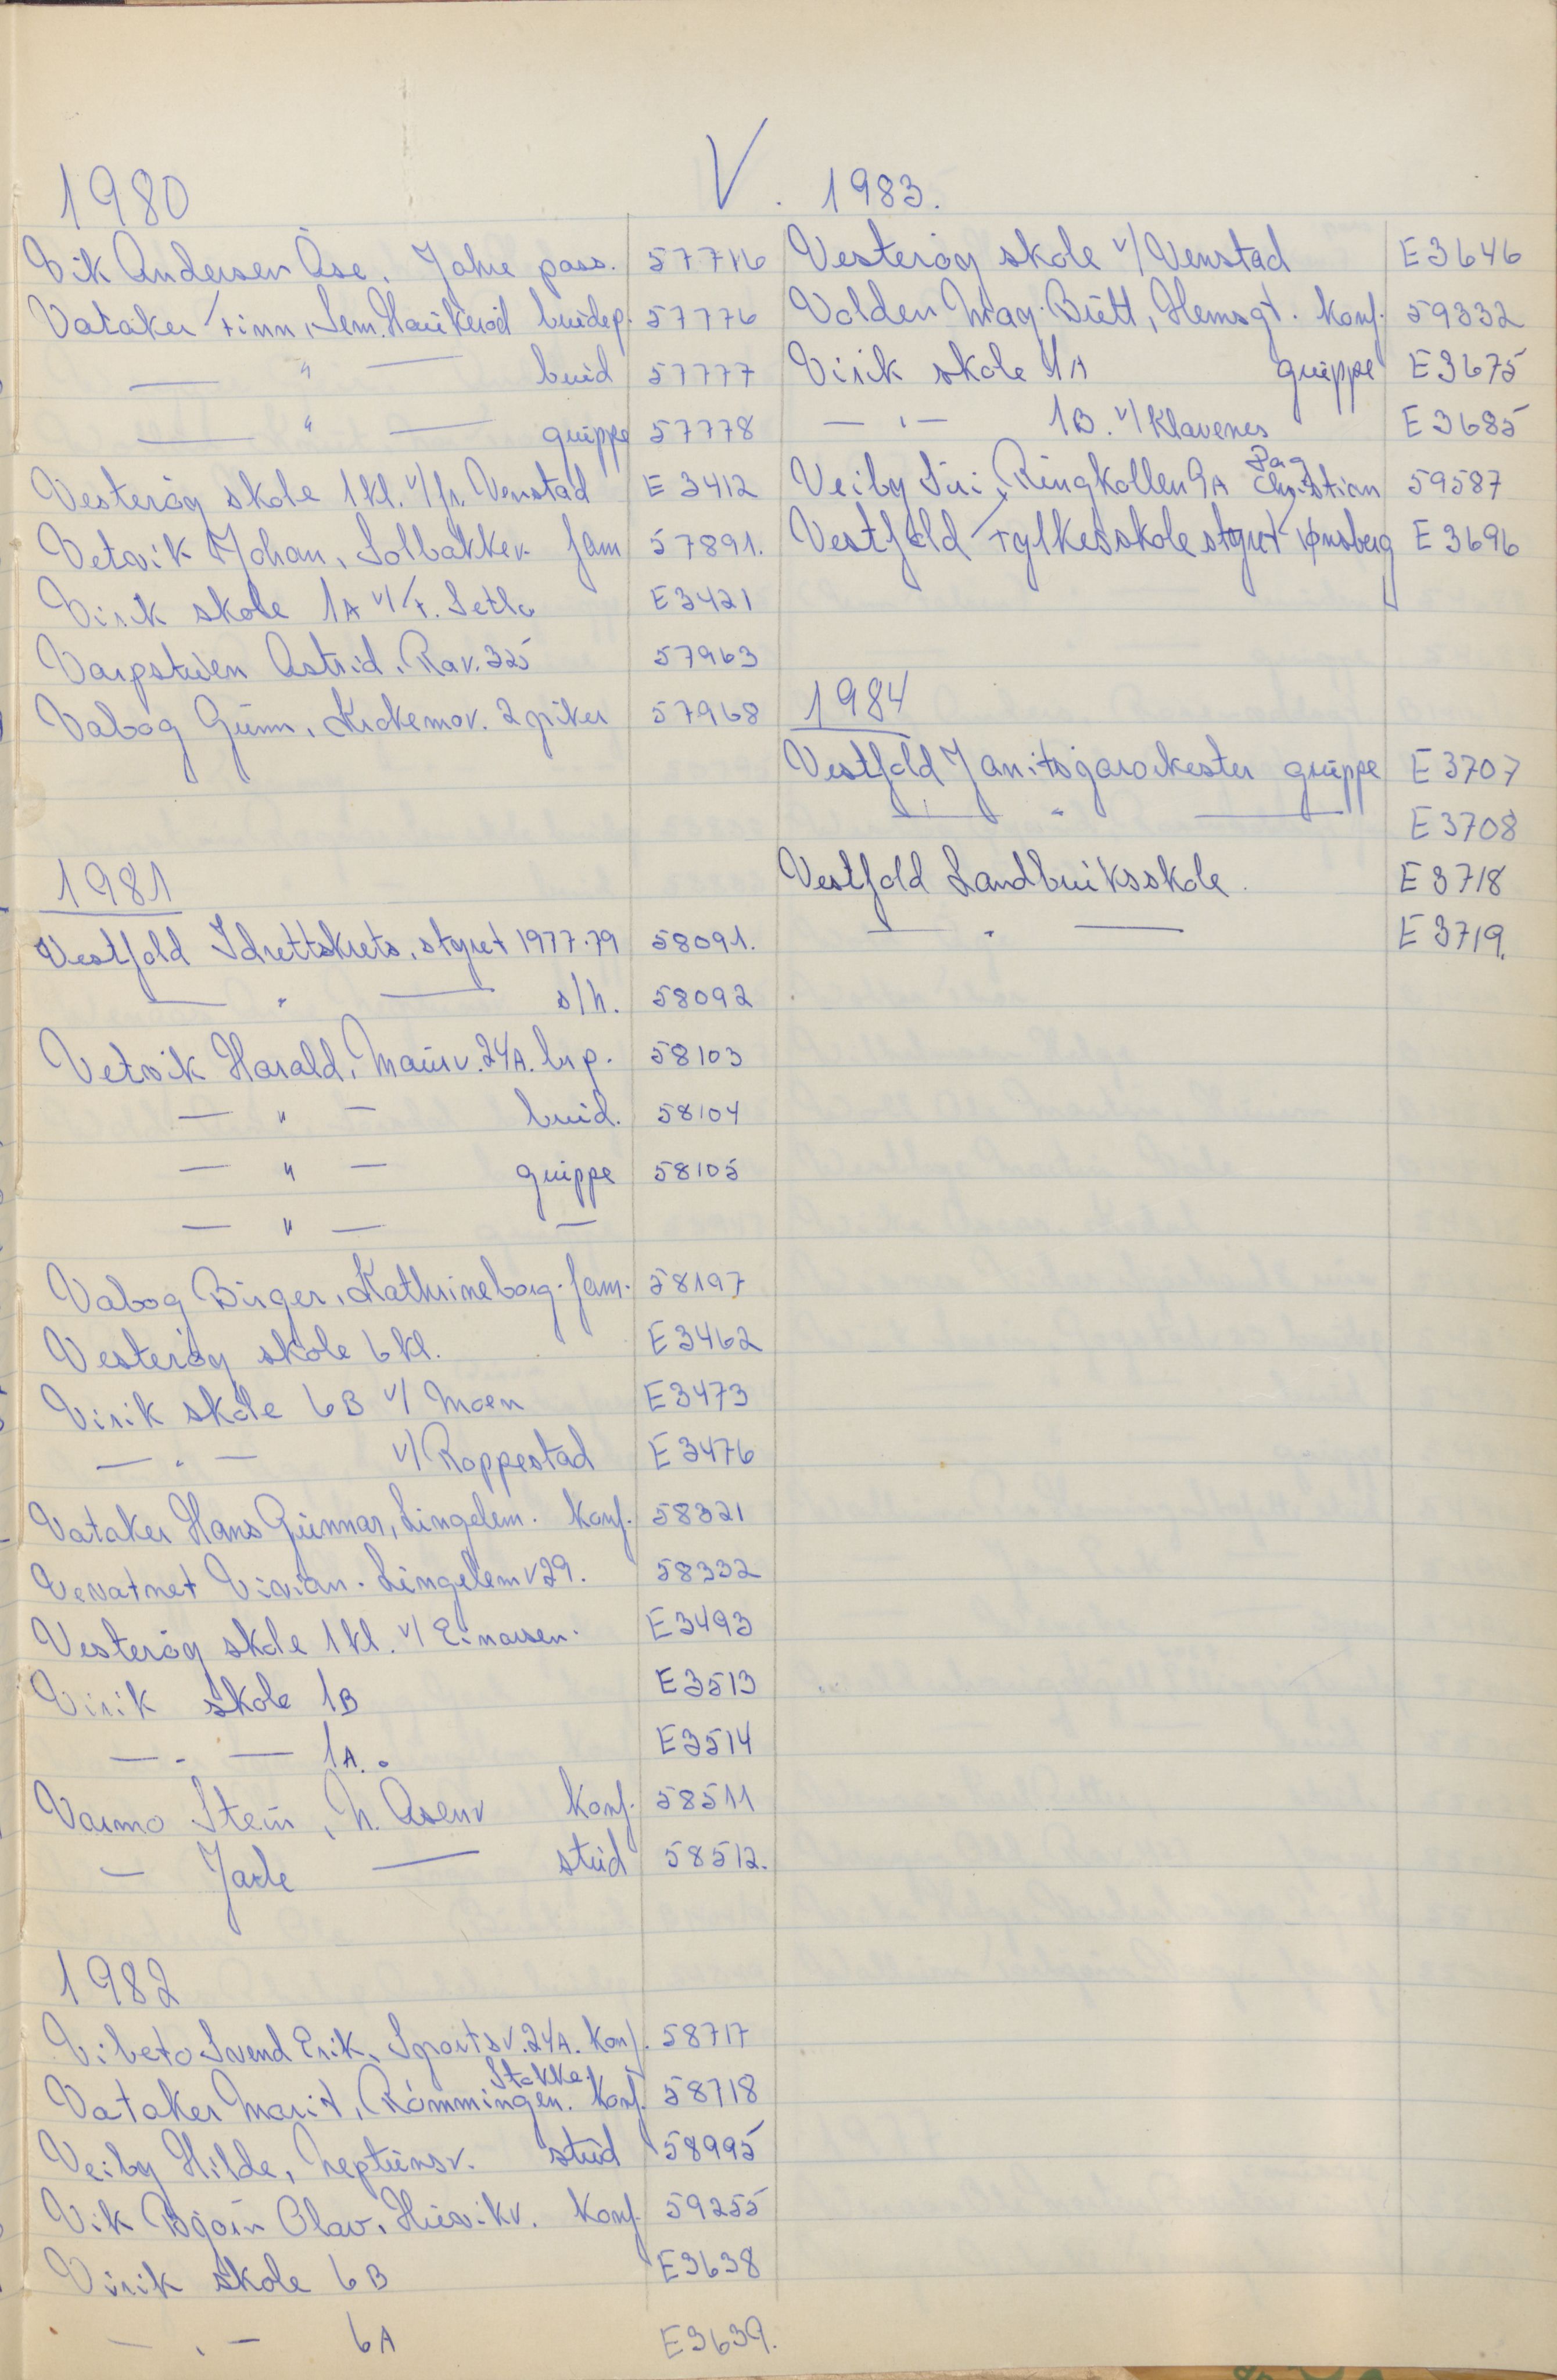 V.
1980
Vik Andersen Åse. Jahre pass. 57716
Vataker Finn, Sem. Haukerød brudep. 57776
— " — brud 57777
— " — gruppe 57778
Vesterøy skole 1 kl. v/fr. Venstad E 3412
Vetvik Johan, Solbakkev. fam 57891.
Virik skole 1A v/F. Setlo E3421
Varpstuen Astrid. Rav. 35 57963
Vabog Gunn, Krokemov. 2 piker 57968
1981
Vestfold Idrettskrets, styret 1977-79 58091.
— " — s/h. 58092
Vetvik Harald, Maurv. 24A. brp. 58103
— " — brud. 58104
— " — gruppe 58105
— " — —
Vabog Birger, Kathrineborg. fam. 58197
Vesterøy skole 6 kl. E3462
Virik skole 6B v/ Moen E3473
— " — v/ Roppestad E3476
Vataker Hans Gunnar, Lingelem. konf. 58321
Vevatnet Vivian. Lingelemv 29. 58332
Vesterøy skole 1 kl. v/ Einarsen. E3493
Virik skole 1B E3513
— " — 1A. E3514
Varmo Stein, N. Åsenv konf. 58511
— Jarle — stud 58512.
1982
Vibeto Svend Erik, Sportsv. 24A. konf. 58717
Vataker Marit, Rømmingen. Stokke. konf. 58718
Veiby Hilde, Neptunsv. stud 58995
Vik Bjørn Olav, Husvikv. konf. 59255
Virik skole 6B E3638
— " — 6A E3639.
1983.
Vesterøy skole v/ Venstad E3646
Volden May-Britt, Hemsgt. konf. 59332
Virik skole 1A gruppe E3675
— " — 1B. v/ Klavenes E3685
Veiby Siri, Ringkollen 9A Dag Christian 59587
Vestfold Fylkesskolestyret Tønsberg E 3696
1984
Vestfold Janitsjarorkester gruppe E 3707
— " — E 3708
Vestfold Landbruksskole. E 3718
— " — E 3719.